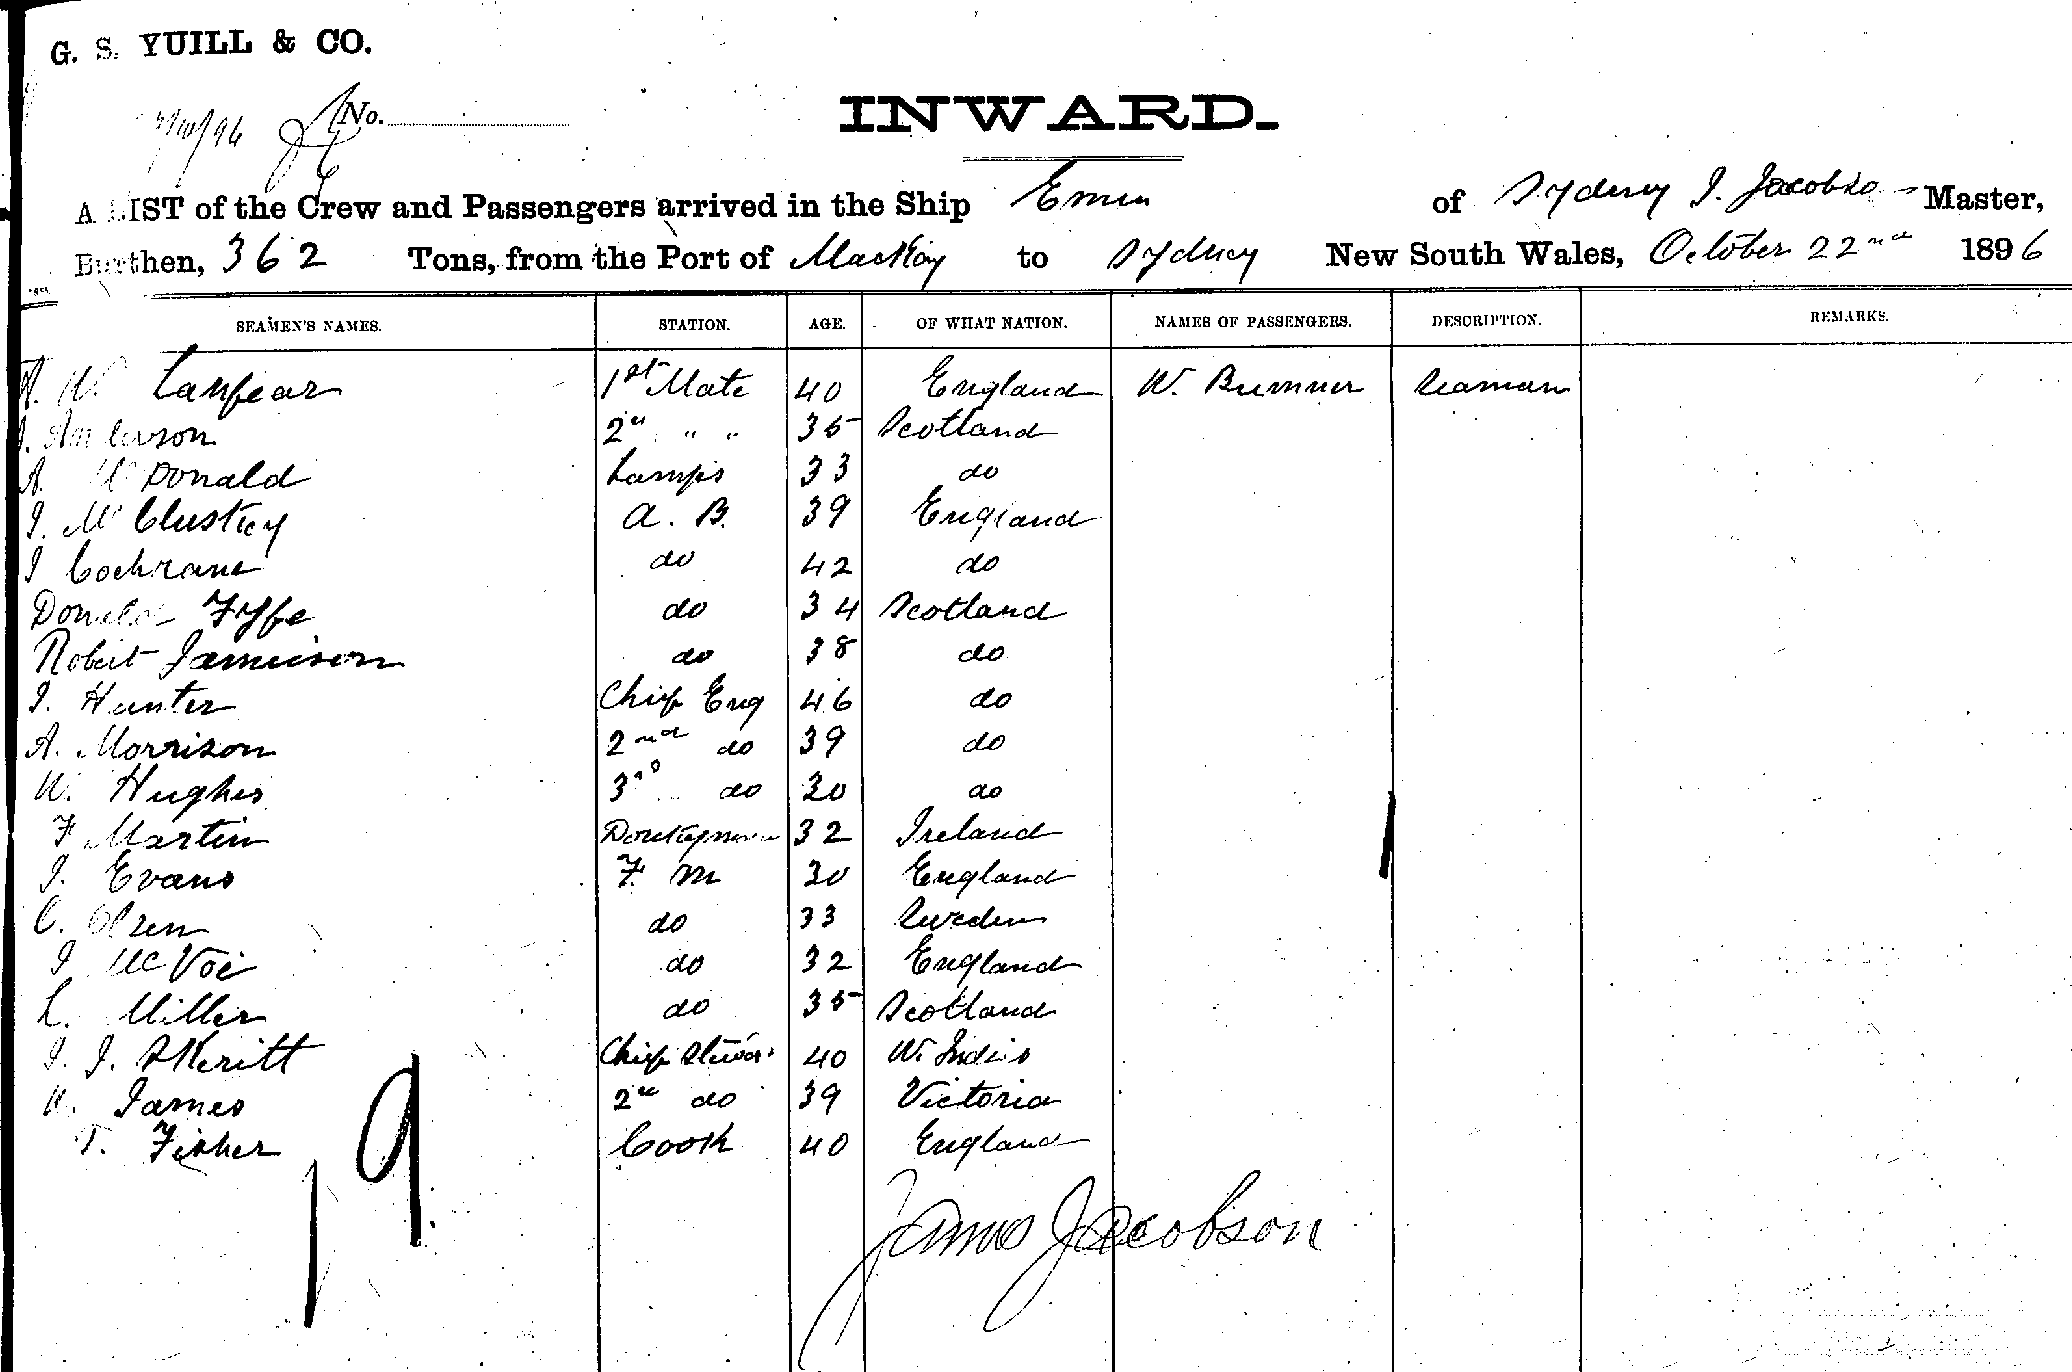 G. S. YUILL & CO.
No.
INWARD.
A LIST of the Crew and Passengers arrived in the Ship of Sydney J. Jacobso Master,
Burthen, 362 Tons, from the Port of Mackay to Sydney New South Wales, October 22nd 1896
SEAMEN'S NAMES. STATION. AGE. OF WHAT NATION. NAMES OF PASSENGERS. DESCRIPTION. REMARKS.
W. Lanfear 1st Mate 40 England W. Seaman
2nd " " 35 Scotland
A. McDonald Lamps 33 do
J. McCluskey A. B. 39 England
J Cochrane do 42 do
Donald Fyffe do 34 Scotland
Robert Jamieson do 38 do
J. Hunter Chief Eng 46 do
A. Morrison 2nd do 39 do
W. Hughes 3rd do 30 do
F Martin Donkeyman 32 Ireland
J. Evans F. M 30 England
C. Olsen do 33 Sweden
J McVoe do 32 England
L. Miller do 35 Scotland
J. J. Skeritt Chief Steward 40 W. Indies
W. James 2nd do 39 Victoria
T. Fisher Cook 40 England
19
James Jacobson